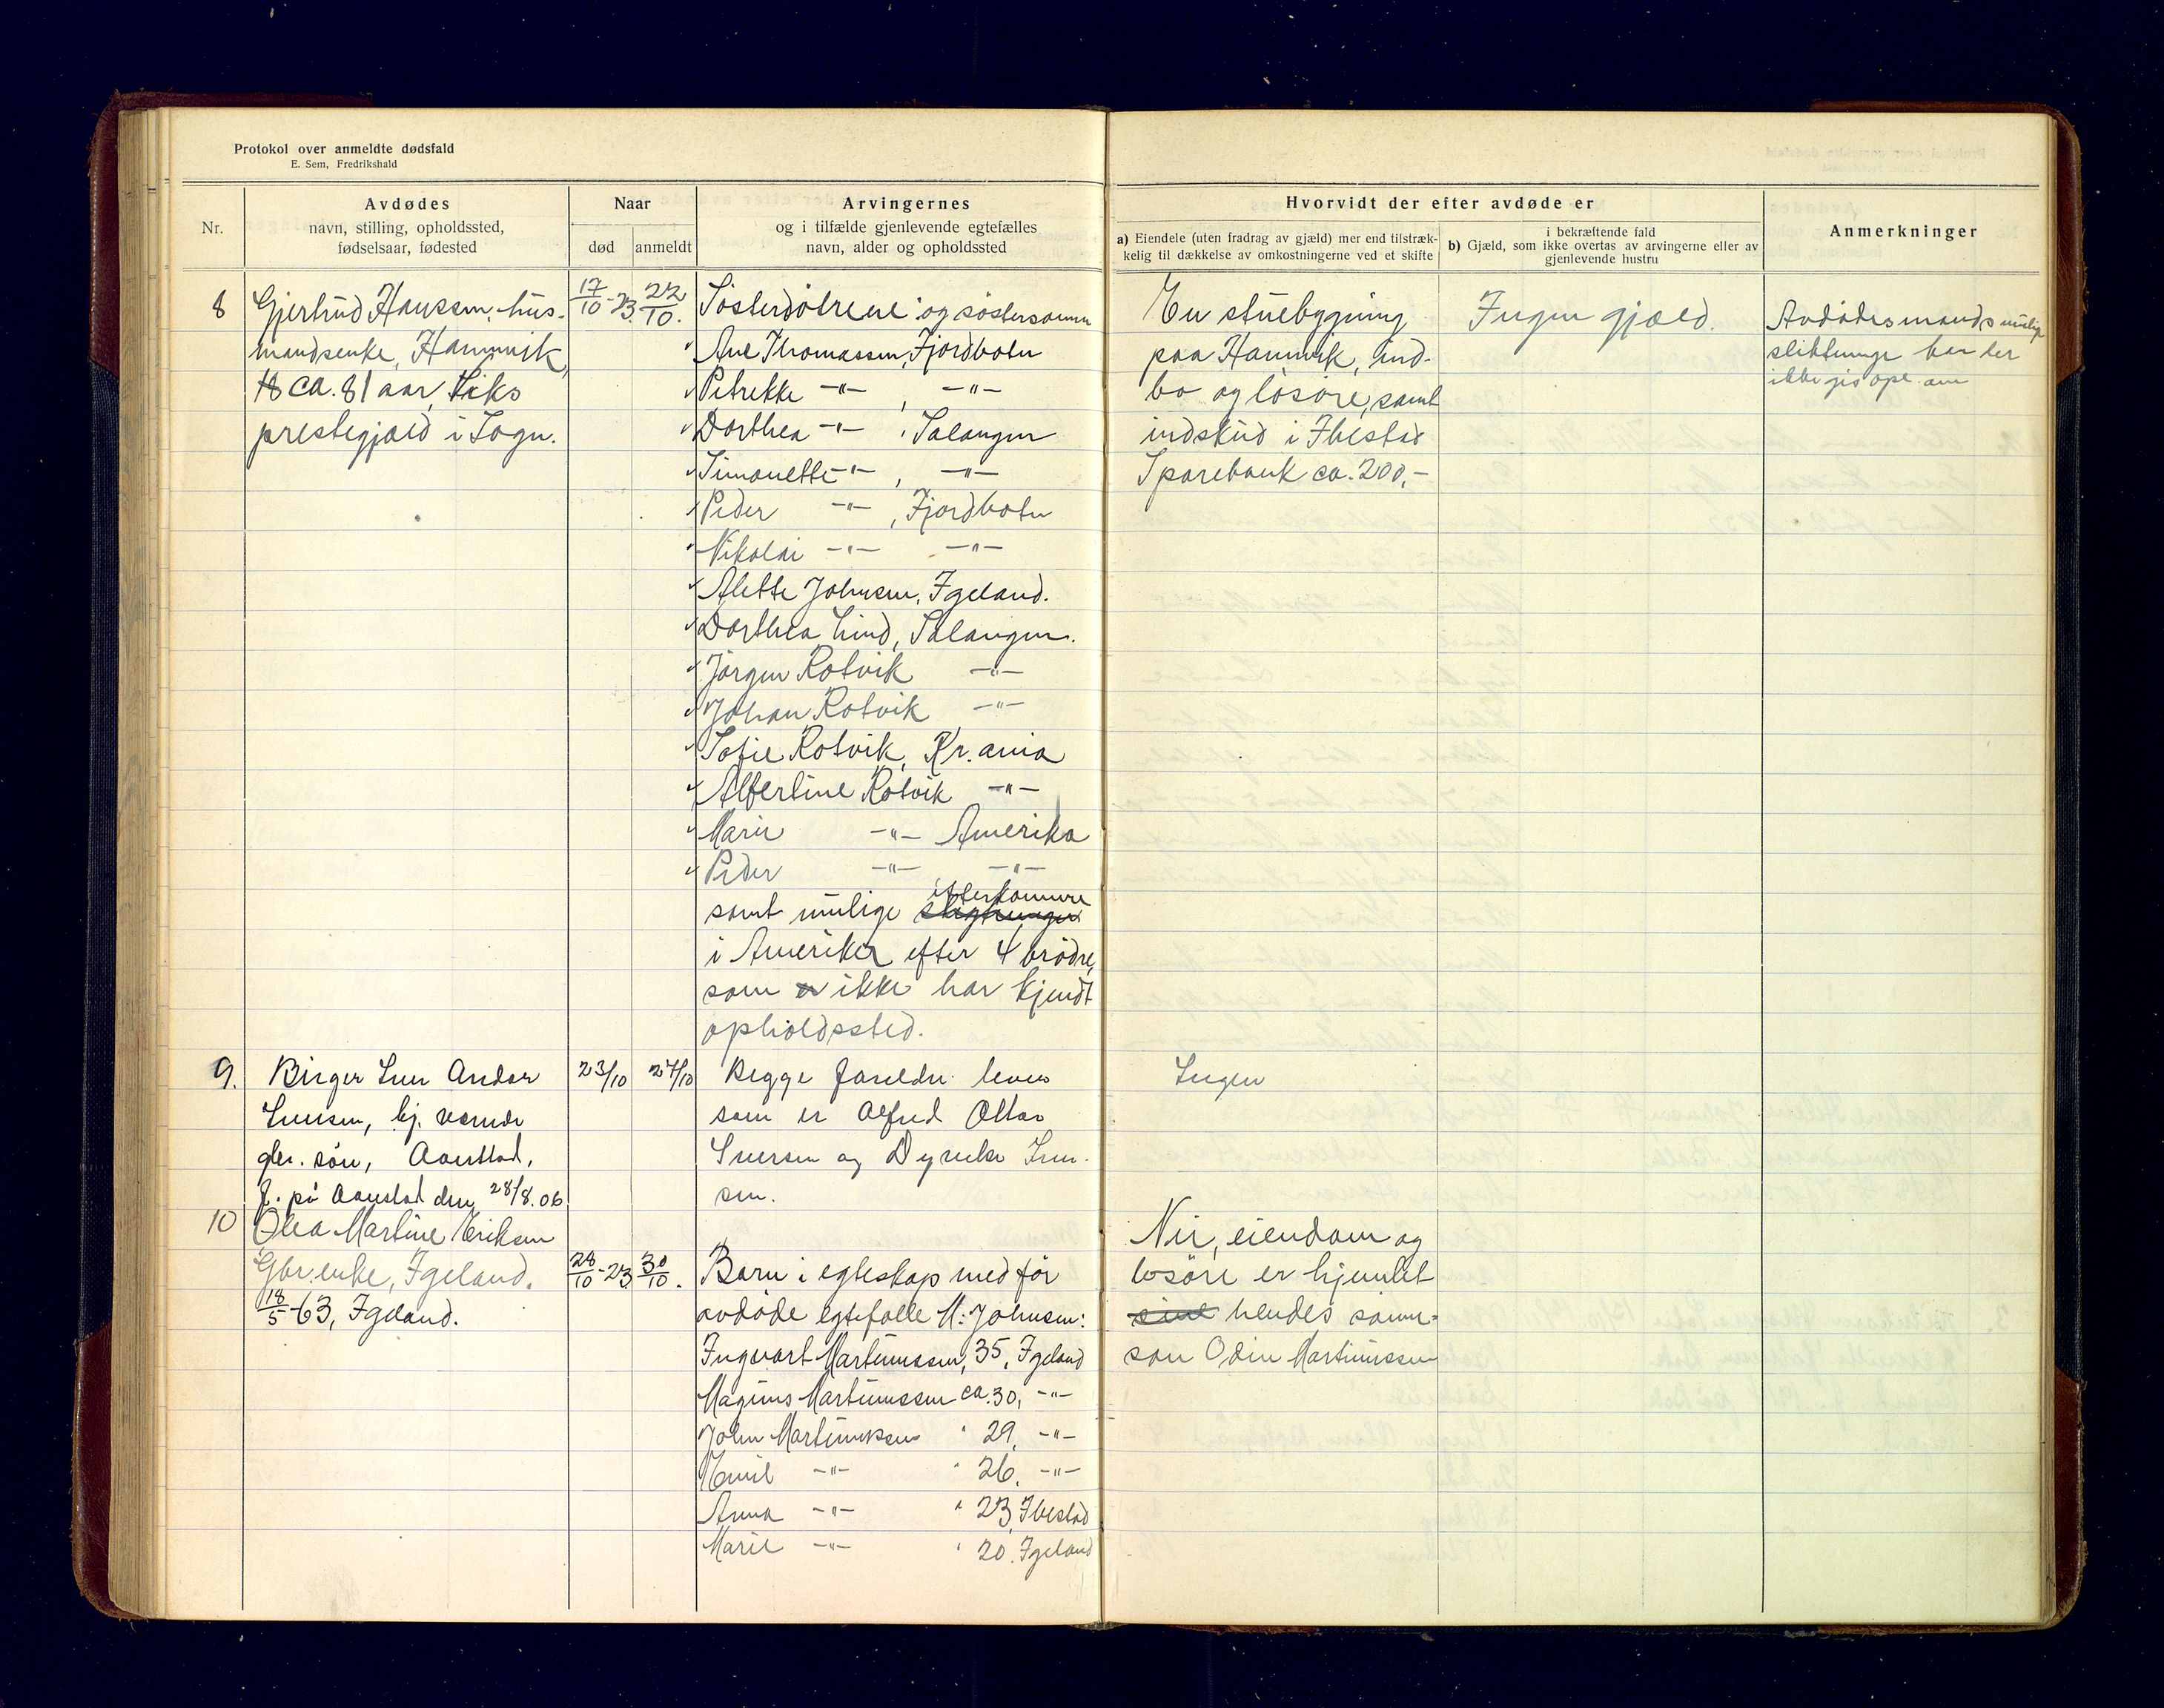 Protokol over anmeldte dødsfald
E. Sem, Fredrikshald
Nr.
Avdødes
navn, stilling, opholdssted,
fødselsaar, fødested
Naar
død
anmeldt
Arvingernes
og i tilfælde gjenlevende egtefælles
navn, alder og opholdssted
Hvorvidt der efter avdøde er
a) Eiendele (uten fradrag av gjæld) mer end tilstræk-
kelig til dækkelse av omkostningerne ved et skifte
i bekræftende fald
b) Gjæld, som ikke overtas av arvingerne eller av
gjenlevende hustru
Anmerkninger
8
Gjertrud Hanssen, hus-
mandsenke, Hamnvik,
ca. 81 aar, Viks
prestegjæld i Sogn.
17/10-23.
22/10.
Søsterdøtrene og søstersønner
Ane Thomassen, Fjordbotn
Petrekke -"- , -"-
Dorthea -"- , Salangen
Simonette -"- , -"-
Peder -"- , Fjordbotn
Nikolai -"- -"-
Alette Johnsen, Igeland.
Dorthea Lind, Salangen.
Jørgen Rotvik -"-
Johan Rotvik -"-
Sofie Rotvik, Kr.ania
Albertine Rotvik -"-
Marie -"- Amerika
Peder -"- -"-
samt mulige efterkommere
i Amerika efter 4 brødre,
som ikke har kjendt
opholdssted.
En stuebygning
paa Hamnvik, ind-
bo og løsøre, samt
indskud i Ibestad
Sparebank ca. 200,-
Ingen gjæld.
Avdødes mands mulige
slektninge kan der
ikke gis opl. om
9.
Birger Andor
Iversen, hj. værende
gbr. søn, Aanstad,
f. på Aanstad den 28/8.06
23/10
27/10
Begge foreldre lever
som er Alfred Ottar
Iversen og Dyrekke Iver-
sen.
Ingen
10
Olea Martine Eriksen
Gbr.enke, Igeland.
18/5-63, Igeland.
28/10-23
30/10.
Barn i egteskap med før
avdøde egtefælle M. Johnsen:
Ingvart Martinussen, 35, Igeland
Magnus Martinussen ca. 30, -"-
John Martinussen " 29, -"-
Emil -"- " 26, -"-
Anna -"- " 23, Ibestad
Marie -"- " 20. Igeland
Nei, eiendom og
løsøre er hjemlet
sine hendes sønne-
søn Odin Martinussen